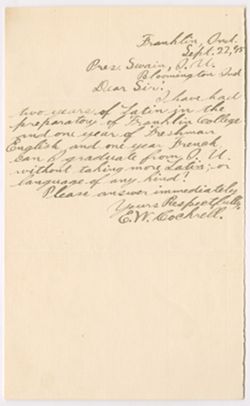 Franklin, Ind.
Sept. 22, 95
Pres. Swain, I. U.
Bloomington Ind
Dear Sir:
I have had
two years of Latin in the
preparatory of Franklin College
and one year of Freshman
English and one year French
can I graduate from I. U.
without taking more Latin, or
language of any kind?
Please answer immediately
Yours Respectfully,
E. W. Cockrell.